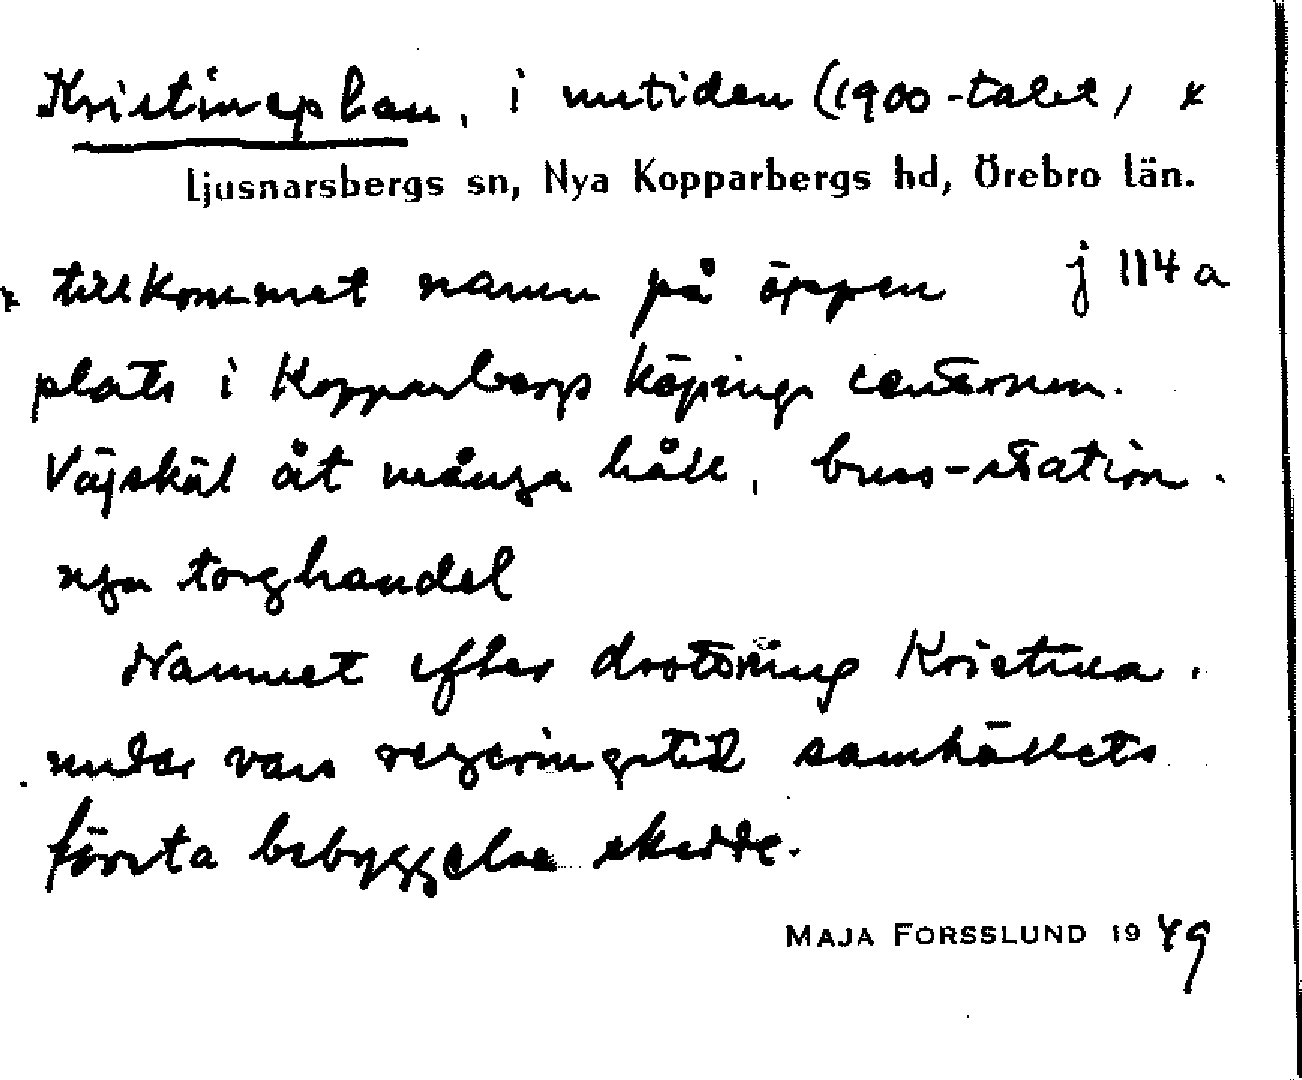 Kristineplan, i nutiden (1900-talet) x
Ljusnarsbergs sn, Nya Kopparbergs hd, Örebro län.
x tillkommet namn på öppen j 114 a
plats i Kopparbergs köpings centrum.
Vägskäl åt många håll, buss-station.
nya torghandel
Namnet efter drottning Kristina.
under vars regeringstid samhällets
första bebyggelse skedde.
MAJA FORSSLUND 1949